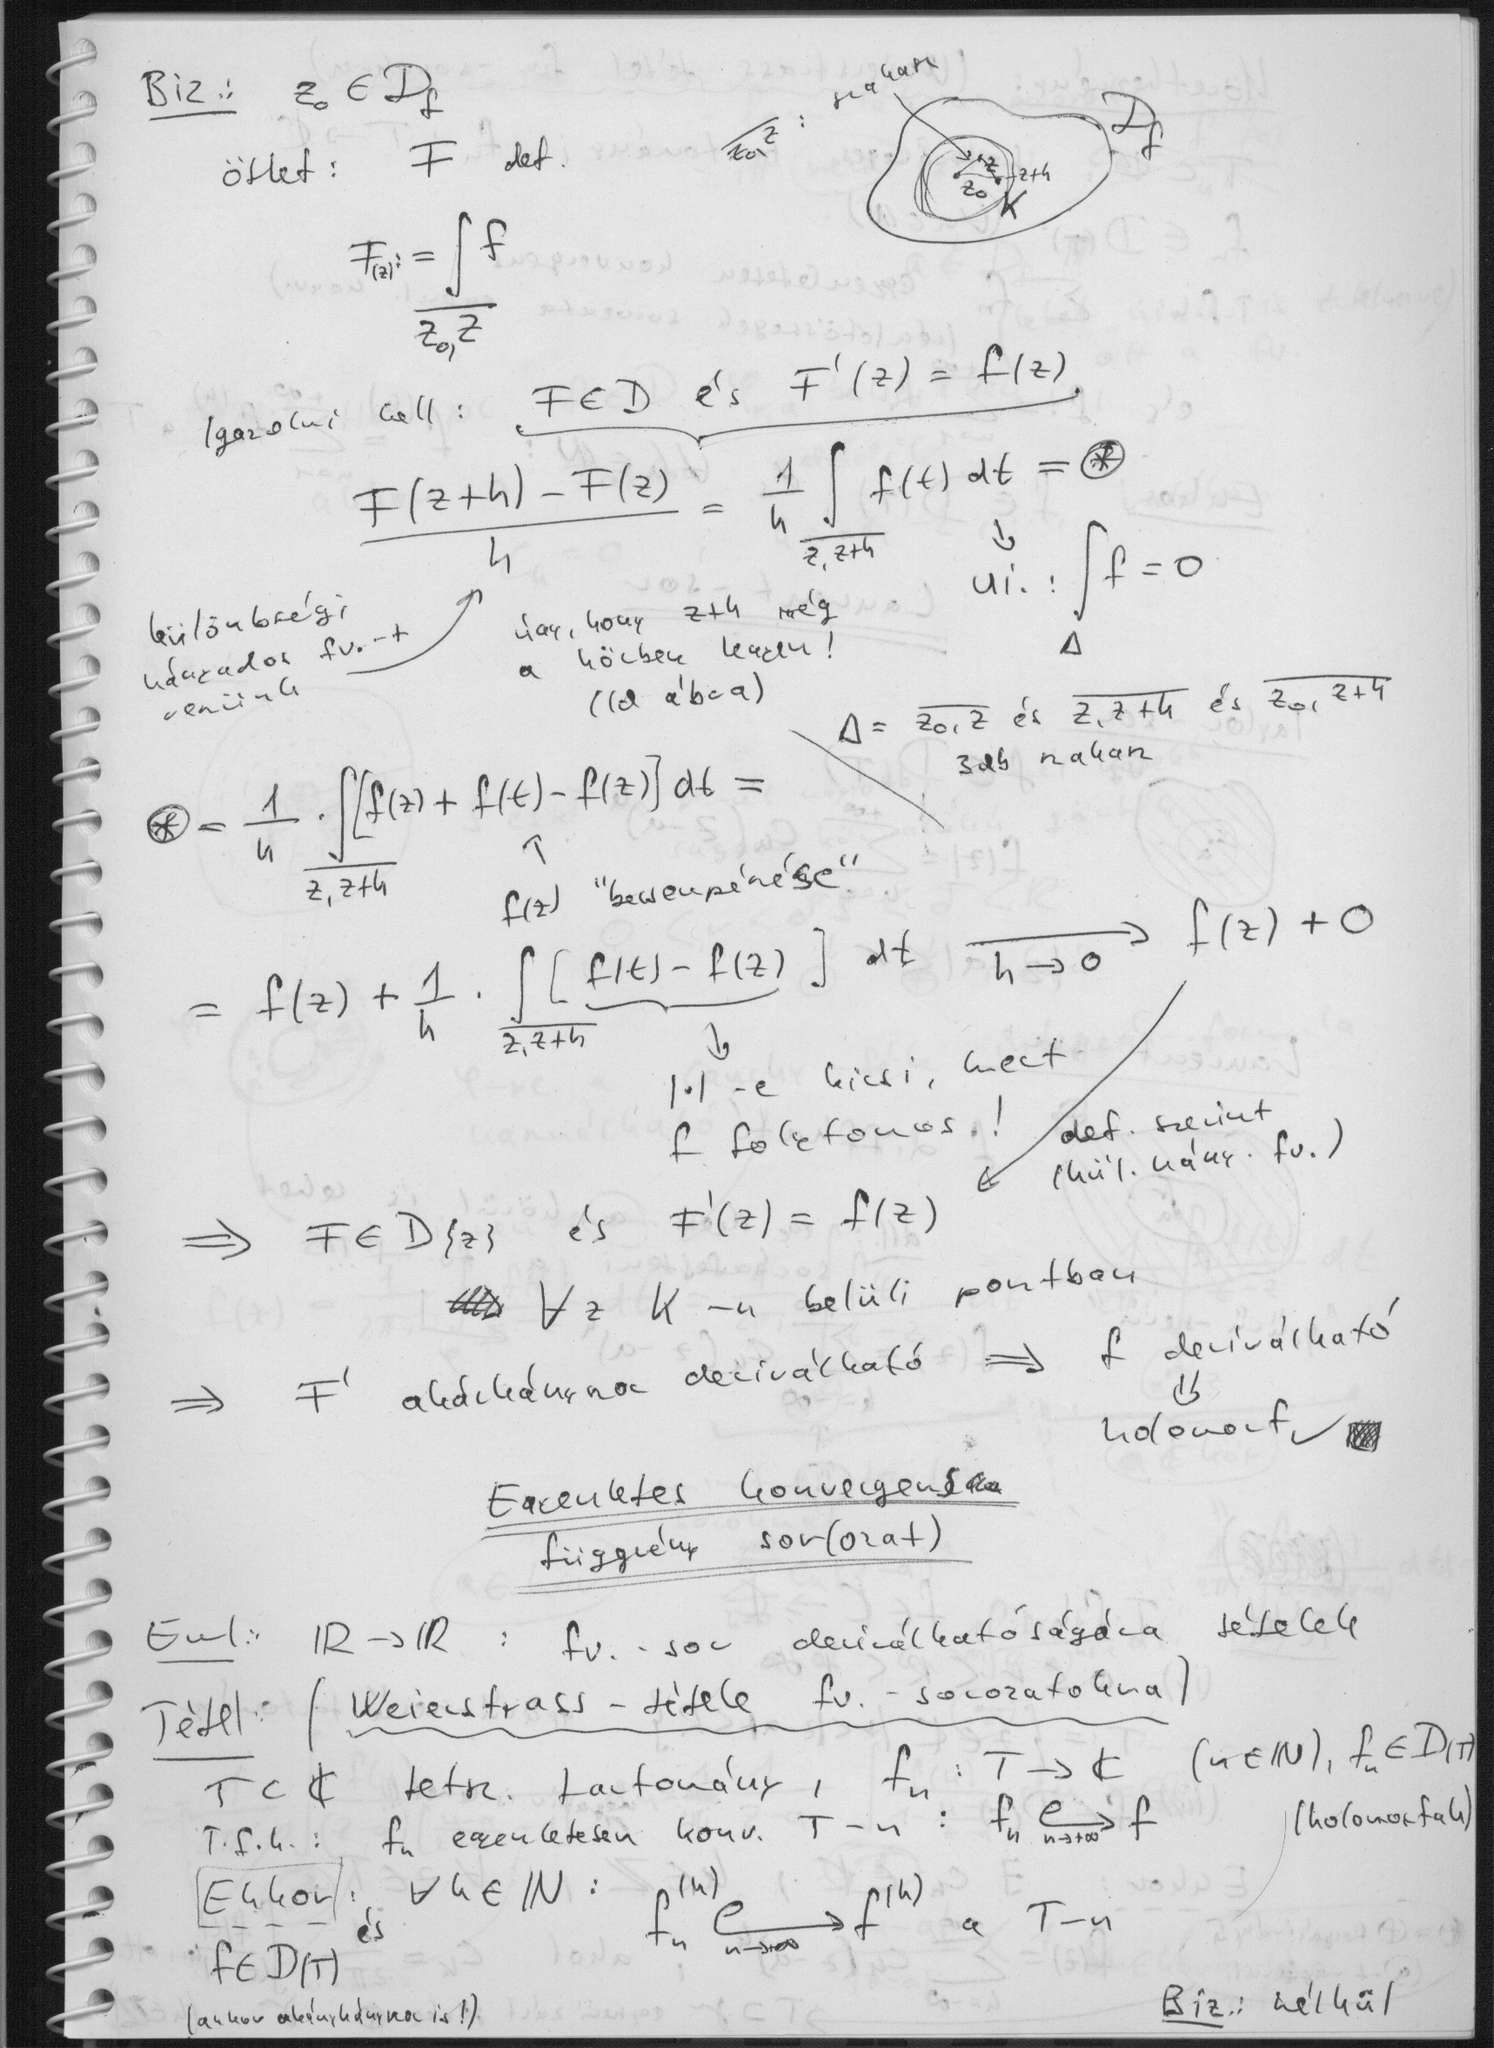 Biz.: z₀ ∈ D_f
z₀,z : szakasz
D_f
z
z+h
z₀
K
ötlet: F def.
F(z) := ∫_{z₀,z} f
Igazolni kell: F∈D és F'(z) = f(z)
(F(z+h) − F(z))/h = 1/h ∫_{z,z+h} f(t) dt = ⊛
ui.: ∫_Δ f = 0
különbségi
hányados fv.-t
veszünk
úgy, hogy z+h még
a körben legyen!
(ld ábra)
Δ = z₀,z és z,z+h és z₀,z+h
3db szakasz
⊛ = 1/h · ∫_{z,z+h} [f(z) + f(t) − f(z)] dt =
↑
f(z) "becsempészése"
= f(z) + 1/h · ∫_{z,z+h} [f(t) − f(z)] dt →_{h→0} f(z) + 0
|·|-e kicsi, mert
f folytonos.!
def. szerint
(kül. hány. fv.)
⇒ F∈D{z} és F'(z) = f(z)
∀z K-n belüli pontban
⇒ F akárhányszor deriválható ⇒ f deriválható
⇓
holomorf ✓
Egyenletes konvergencia
függvény sor(ozat)
Eml.: ℝ→ℝ : fv.-sor deriválhatóságára tételek
Tétel: (Weierstrass-tétele fv.-sorozatokra)
T⊂ℂ tetsz. tartomány, fₙ: T→ℂ (n∈ℕ), fₙ∈D(T)
(holomorfak)
T.f.h.: fₙ egyenletesen konv. T-n : fₙ →^e_{n→+∞} f
Ekkor: ∀k∈ℕ : fₙ^(k) →^e_{n→+∞} f^(k) a T-n
és
f∈D(T)
(akkor akárhányszor is!)
Biz.: nélkül